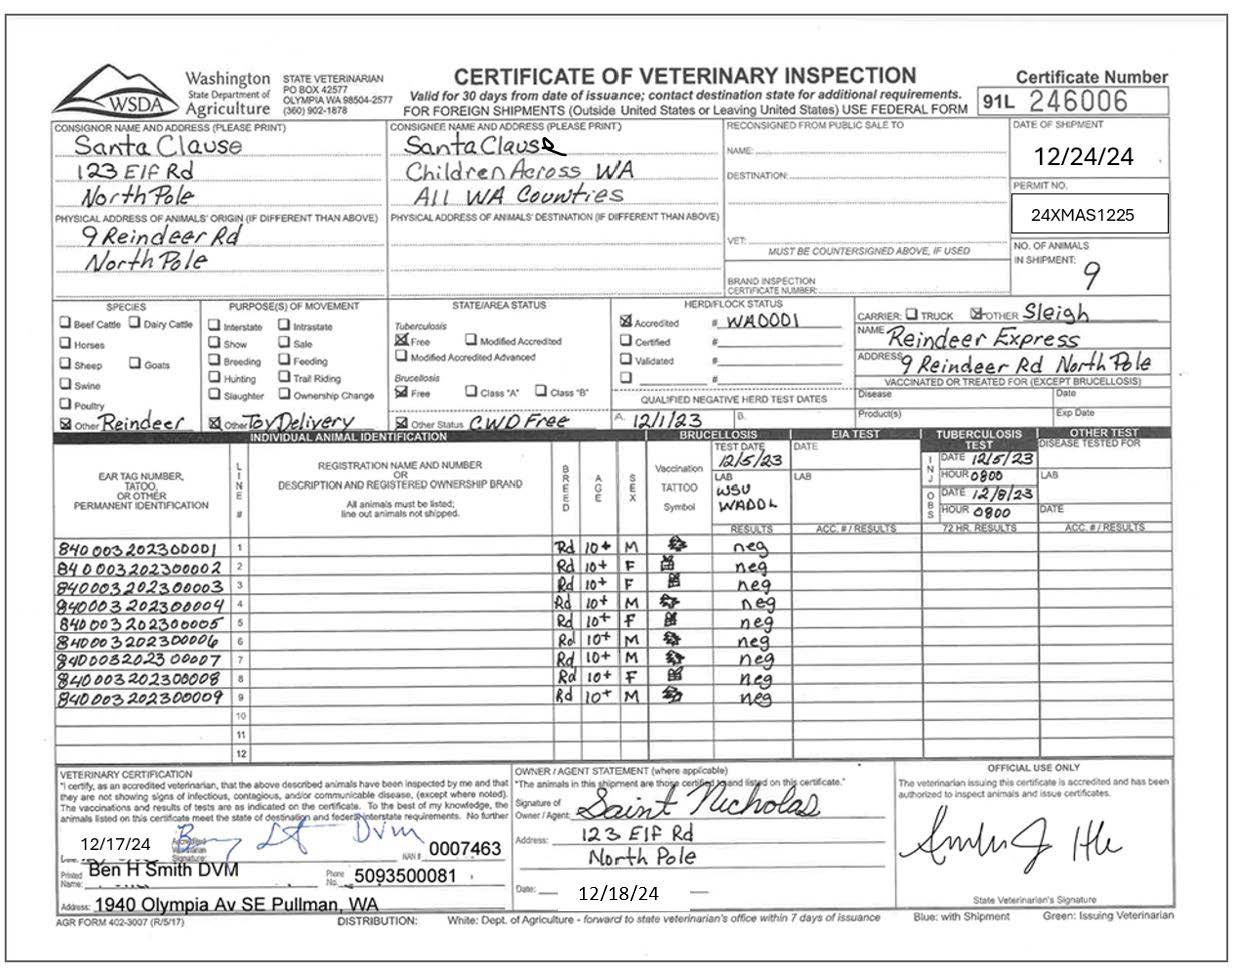 WSDA
Washington
State Department of
Agriculture
STATE VETERINARIAN
PO BOX 42577
OLYMPIA WA 98504-2577
(360) 902-1878
CERTIFICATE OF VETERINARY INSPECTION
Valid for 30 days from date of issuance; contact destination state for additional requirements.
FOR FOREIGN SHIPMENTS (Outside United States or Leaving United States) USE FEDERAL FORM
Certificate Number
91L 246006
CONSIGNOR NAME AND ADDRESS (PLEASE PRINT)
Santa Clause
123 Elf Rd
North Pole
PHYSICAL ADDRESS OF ANIMALS' ORIGIN (IF DIFFERENT THAN ABOVE)
9 Reindeer Rd
North Pole
CONSIGNEE NAME AND ADDRESS (PLEASE PRINT)
Santa Clause
Children Across WA
All WA Counties
PHYSICAL ADDRESS OF ANIMALS' DESTINATION (IF DIFFERENT THAN ABOVE)
RECONSIGNED FROM PUBLIC SALE TO
NAME:
DESTINATION:
VET:
MUST BE COUNTERSIGNED ABOVE, IF USED
BRAND INSPECTION
CERTIFICATE NUMBER:
DATE OF SHIPMENT
12/24/24
PERMIT NO.
24XMAS1225
NO. OF ANIMALS
IN SHIPMENT:
9
SPECIES
Beef Cattle Dairy Cattle
Horses
Sheep Goats
Swine
Poultry
Other Reindeer
PURPOSE(S) OF MOVEMENT
Interstate Intrastate
Show Sale
Breeding Feeding
Hunting Trail Riding
Slaughter Ownership Change
Other Toy Delivery
STATE/AREA STATUS
Tuberculosis
Free Modified Accredited
Modified Accredited Advanced
Brucellosis
Free Class "A" Class "B"
Other Status CWD Free
HERD/FLOCK STATUS
Accredited # WA0001
Certified #
Validated #
#
QUALIFIED NEGATIVE HERD TEST DATES
A. 12/1/23 B.
CARRIER: TRUCK OTHER Sleigh
NAME Reindeer Express
ADDRESS 9 Reindeer Rd North Pole
VACCINATED OR TREATED FOR (EXCEPT BRUCELLOSIS)
Disease Date
Product(s) Exp Date
INDIVIDUAL ANIMAL IDENTIFICATION
BRUCELLOSIS
EIA TEST
TUBERCULOSIS
TEST
OTHER TEST
EAR TAG NUMBER,
TATOO,
OR OTHER
PERMANENT IDENTIFICATION
LINE #
REGISTRATION NAME AND NUMBER
OR
DESCRIPTION AND REGISTERED OWNERSHIP BRAND
All animals must be listed;
line out animals not shipped.
BREED
AGE
SEX
Vaccination
TATTOO
Symbol
TEST DATE
12/5/23
LAB
WSU
WADDL
RESULTS
DATE
LAB
ACC. # / RESULTS
INJ
DATE 12/5/23
HOUR 0800
OBS
DATE 12/8/23
HOUR 0800
72 HR. RESULTS
DISEASE TESTED FOR
LAB
DATE
ACC. # / RESULTS
840003202300001 1 Rd 10+ M neg
840003202300002 2 Rd 10+ F neg
840003202300003 3 Rd 10+ F neg
840003202300004 4 Rd 10+ M neg
840003202300005 5 Rd 10+ F neg
840003202300006 6 Rd 10+ M neg
840003202300007 7 Rd 10+ M neg
840003202300008 8 Rd 10+ F neg
840003202300009 9 Rd 10+ M neg
10
11
12
VETERINARY CERTIFICATION
"I certify, as an accredited veterinarian, that the above described animals have been inspected by me and that
they are not showing signs of infectious, contagious, and/or communicable disease, (except where noted).
The vaccinations and results of tests are as indicated on the certificate. To the best of my knowledge, the
animals listed on this certificate meet the state of destination and federal interstate requirements. No further
12/17/24
Accredited
Veterinarian
Signature:
DVM
NAN # 0007463
Printed
Name: Ben H Smith DVM
Phone
No. 5093500081
Address: 1940 Olympia Av SE Pullman, WA
OWNER / AGENT STATEMENT (where applicable)
"The animals in this shipment are those certified to and listed on this certificate."
Signature of
Owner / Agent: Saint Nicholas
Address: 123 Elf Rd
North Pole
Date: 12/18/24
OFFICIAL USE ONLY
The veterinarian issuing this certificate is accredited and has been
authorized to inspect animals and issue certificates.
State Veterinarian's Signature
AGR FORM 402-3007 (R/5/17)
DISTRIBUTION: White: Dept. of Agriculture - forward to state veterinarian's office within 7 days of issuance Blue: with Shipment Green: Issuing Veterinarian